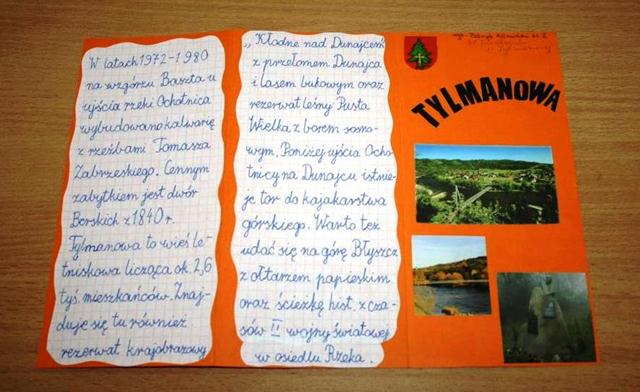 W latach 1972-1980
na wzgórzu Baszta u
ujścia rzeki Ochotnica
wybudowano kalwarię
z rzeźbami Tomasza
Zabrzeskiego. Cennym
zabytkiem jest dwór
Berskich z 1840 r.
Tylmanowa to wieś le-
tniskowa licząca ok. 2,6
tyś. mieszkańców. Znaj-
duje się tu również
rezerwat krajobrazowy
„Kłodne nad Dunajcem"
z przełomem Dunajca
i lasem bukowym oraz
rezerwat leśny Pusta
Wielka z borem sosno-
wym. Poniżej ujścia Ocho-
tnicy na Dunajcu istnie-
je tor do kajakarstwa
górskiego. Warto też
udać się na górę Błyszcz
z ołtarzem papieskim
oraz ścieżkę hist. z cza-
sów II wojny światowej
w osiedlu Rzeka.
TYLMANOWA